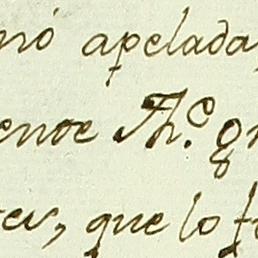 nó apelada
ente Th.e q
es, que lo f